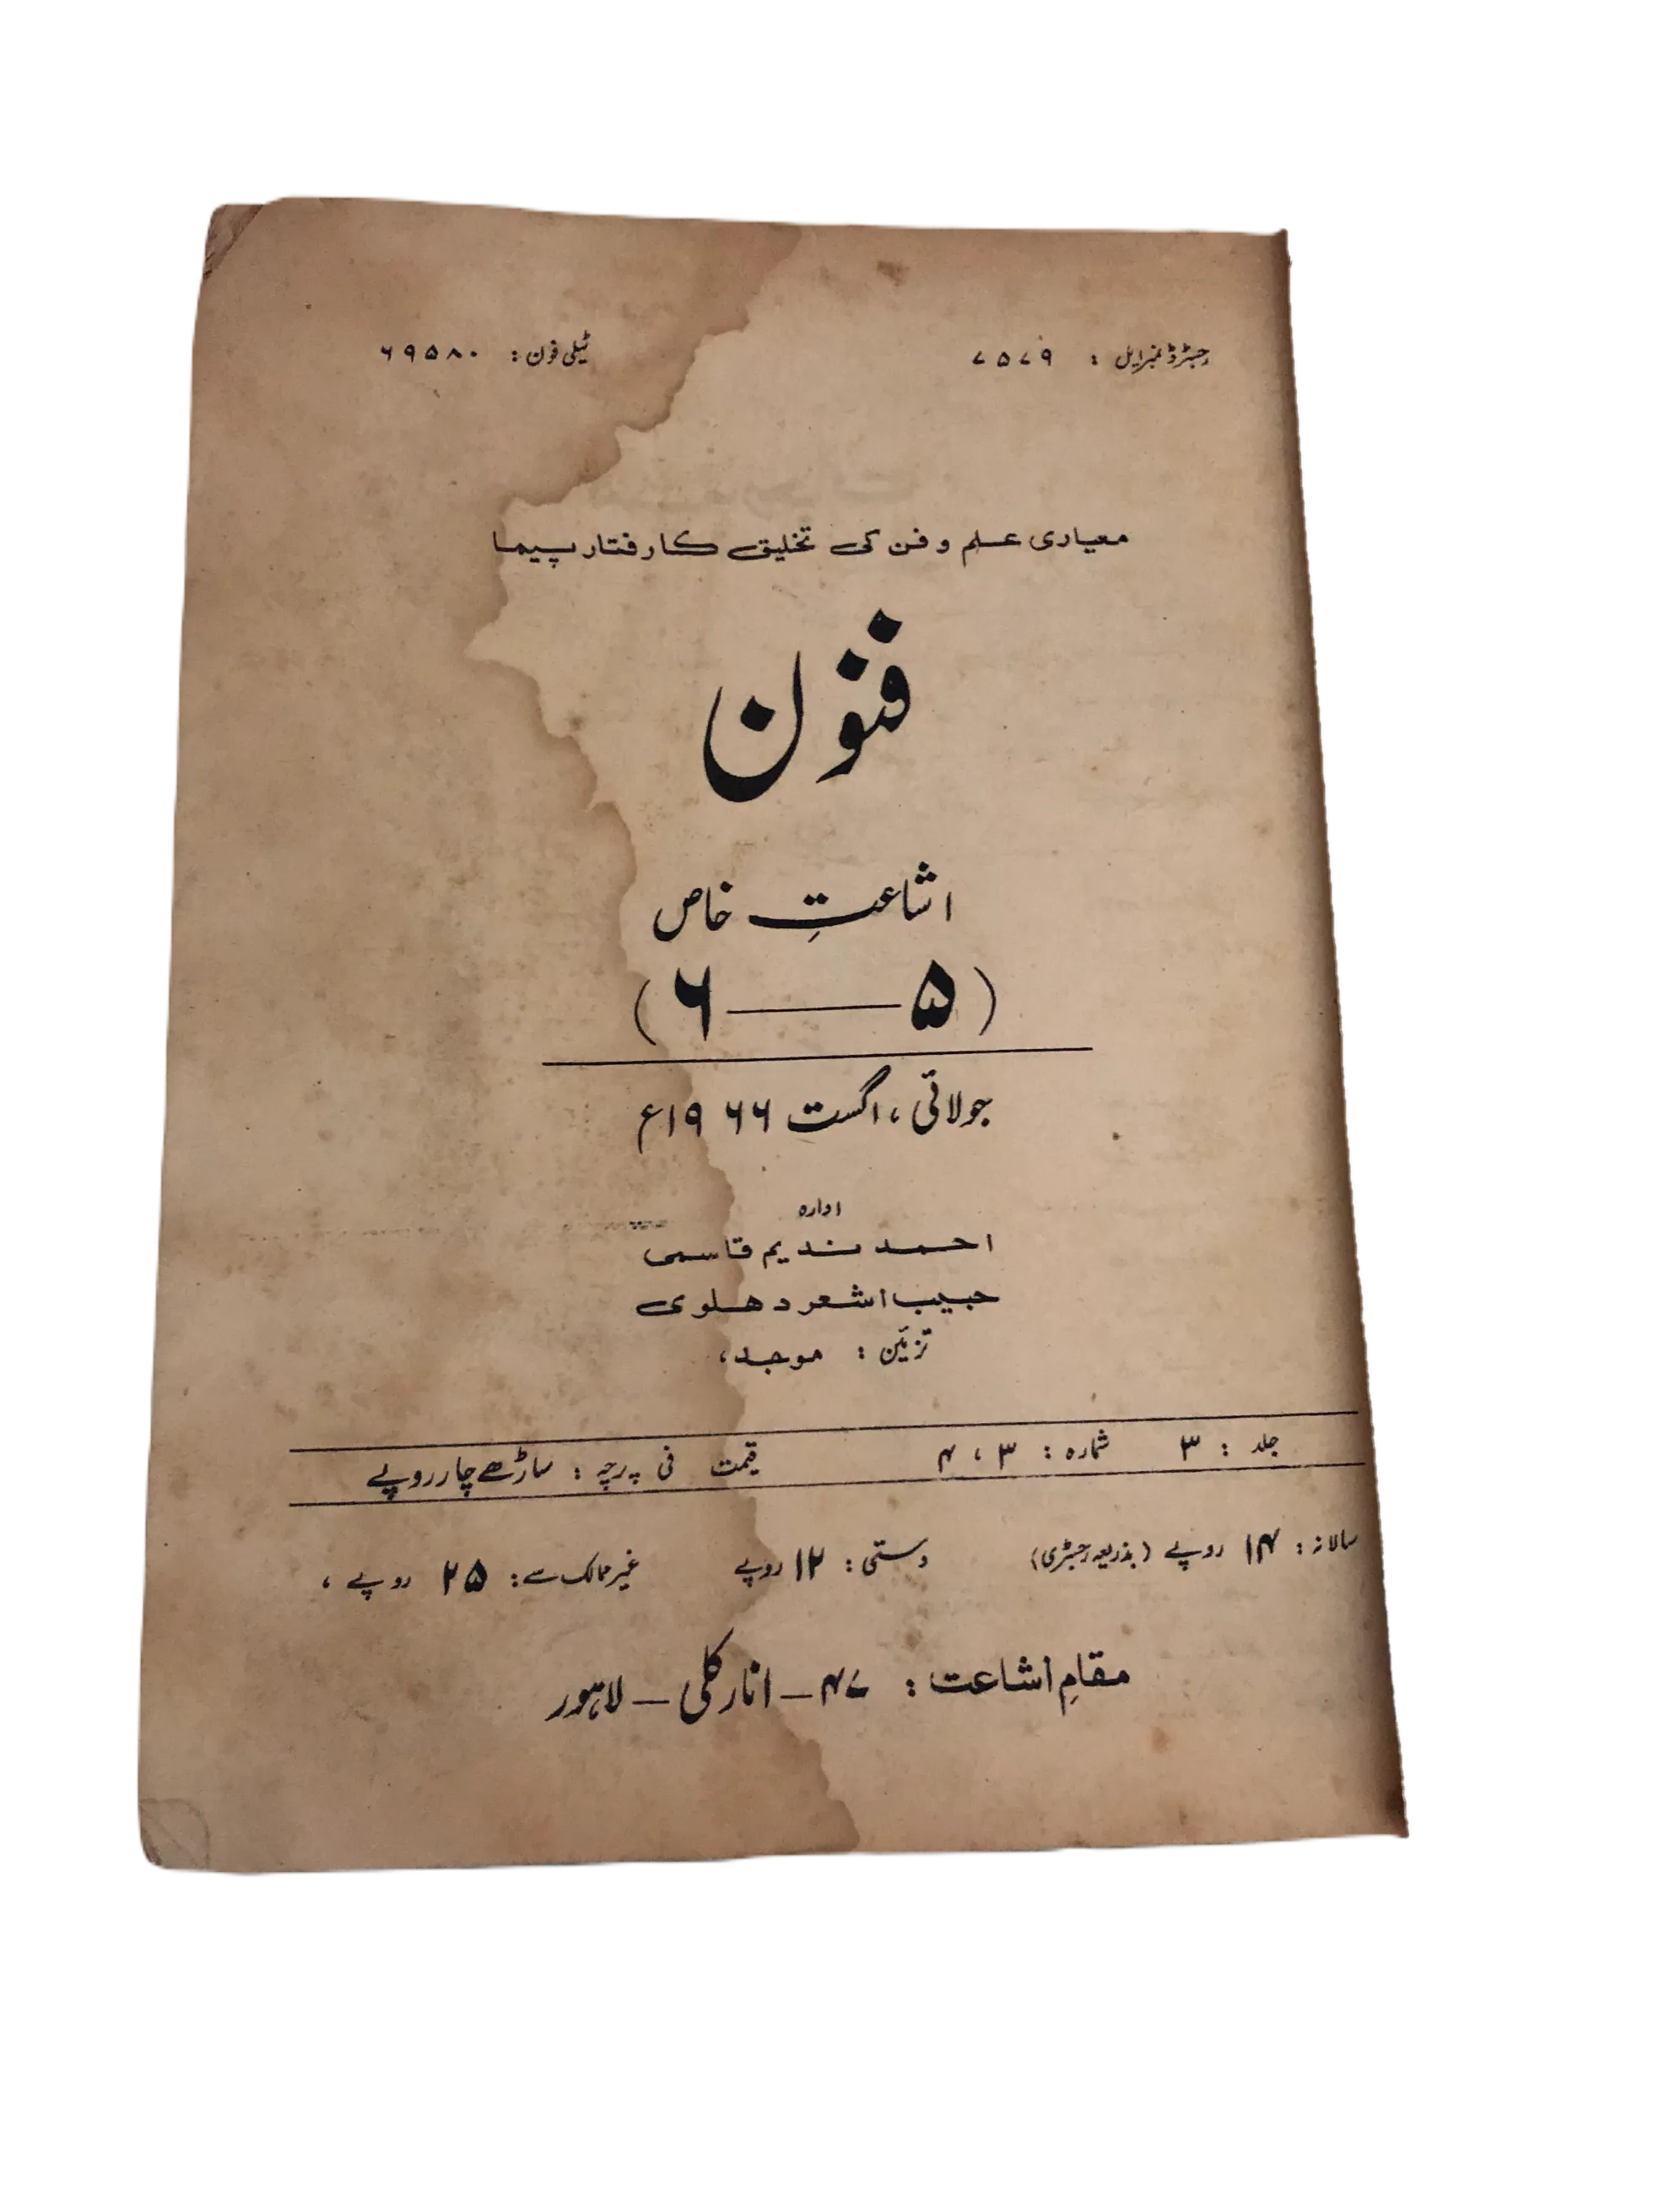 رجسٹرڈ نمبر ایل : ۷۵۷۹ ٹیلی فون : ۶۹۵۸۰
معیاری علم و فن کی تخلیق کا رفتار پیما
فنون
اشاعتِ خاص
(۵——۶)
جولائی، اگست ۱۹۶۶ء
ادارہ
احمد ندیم قاسمی
حبیب اشعر دہلوی
تزئین : موجد،
جلد : ۳ شمارہ : ۳، ۴ قیمت فی پرچہ : ساڑھے چار روپے
سالانہ : ۱۴ روپے (بذریعہ رجسٹری) دستی : ۱۲ روپے غیر ممالک سے : ۲۵ روپے،
مقامِ اشاعت : ۴۷ – انارکلی – لاہور